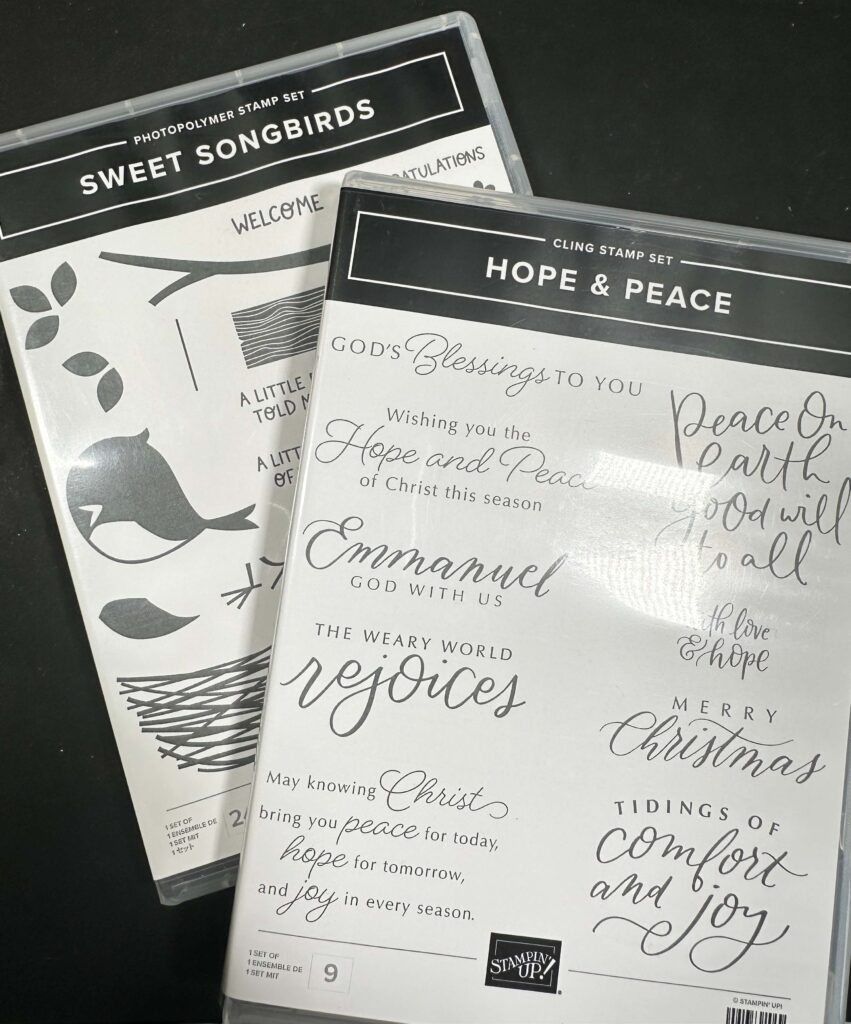 PHOTOPOLYMER STAMP SET
SWEET SONGBIRDS
WELCOME
A LITTLE
TOLD
A
OF
1 SET OF
1 ENSEMBLE DE
1 SET MIT
1セット
CLING STAMP SET
HOPE & PEACE
GOD'S Blessings TO YOU
Wishing you the
Hope and Peace
of Christ this season
Emmanuel
GOD WITH US
THE WEARY WORLD
rejoices
May knowing Christ
bring you peace for today,
hope for tomorrow,
and joy in every season.
Peace On
Earth
good will
to all
with love
& hope
MERRY
Christmas
TIDINGS OF
comfort
and joy
1 SET OF
1 ENSEMBLE DE
1 SET MIT
9
STAMPIN'
UP!
© STAMPIN' UP!